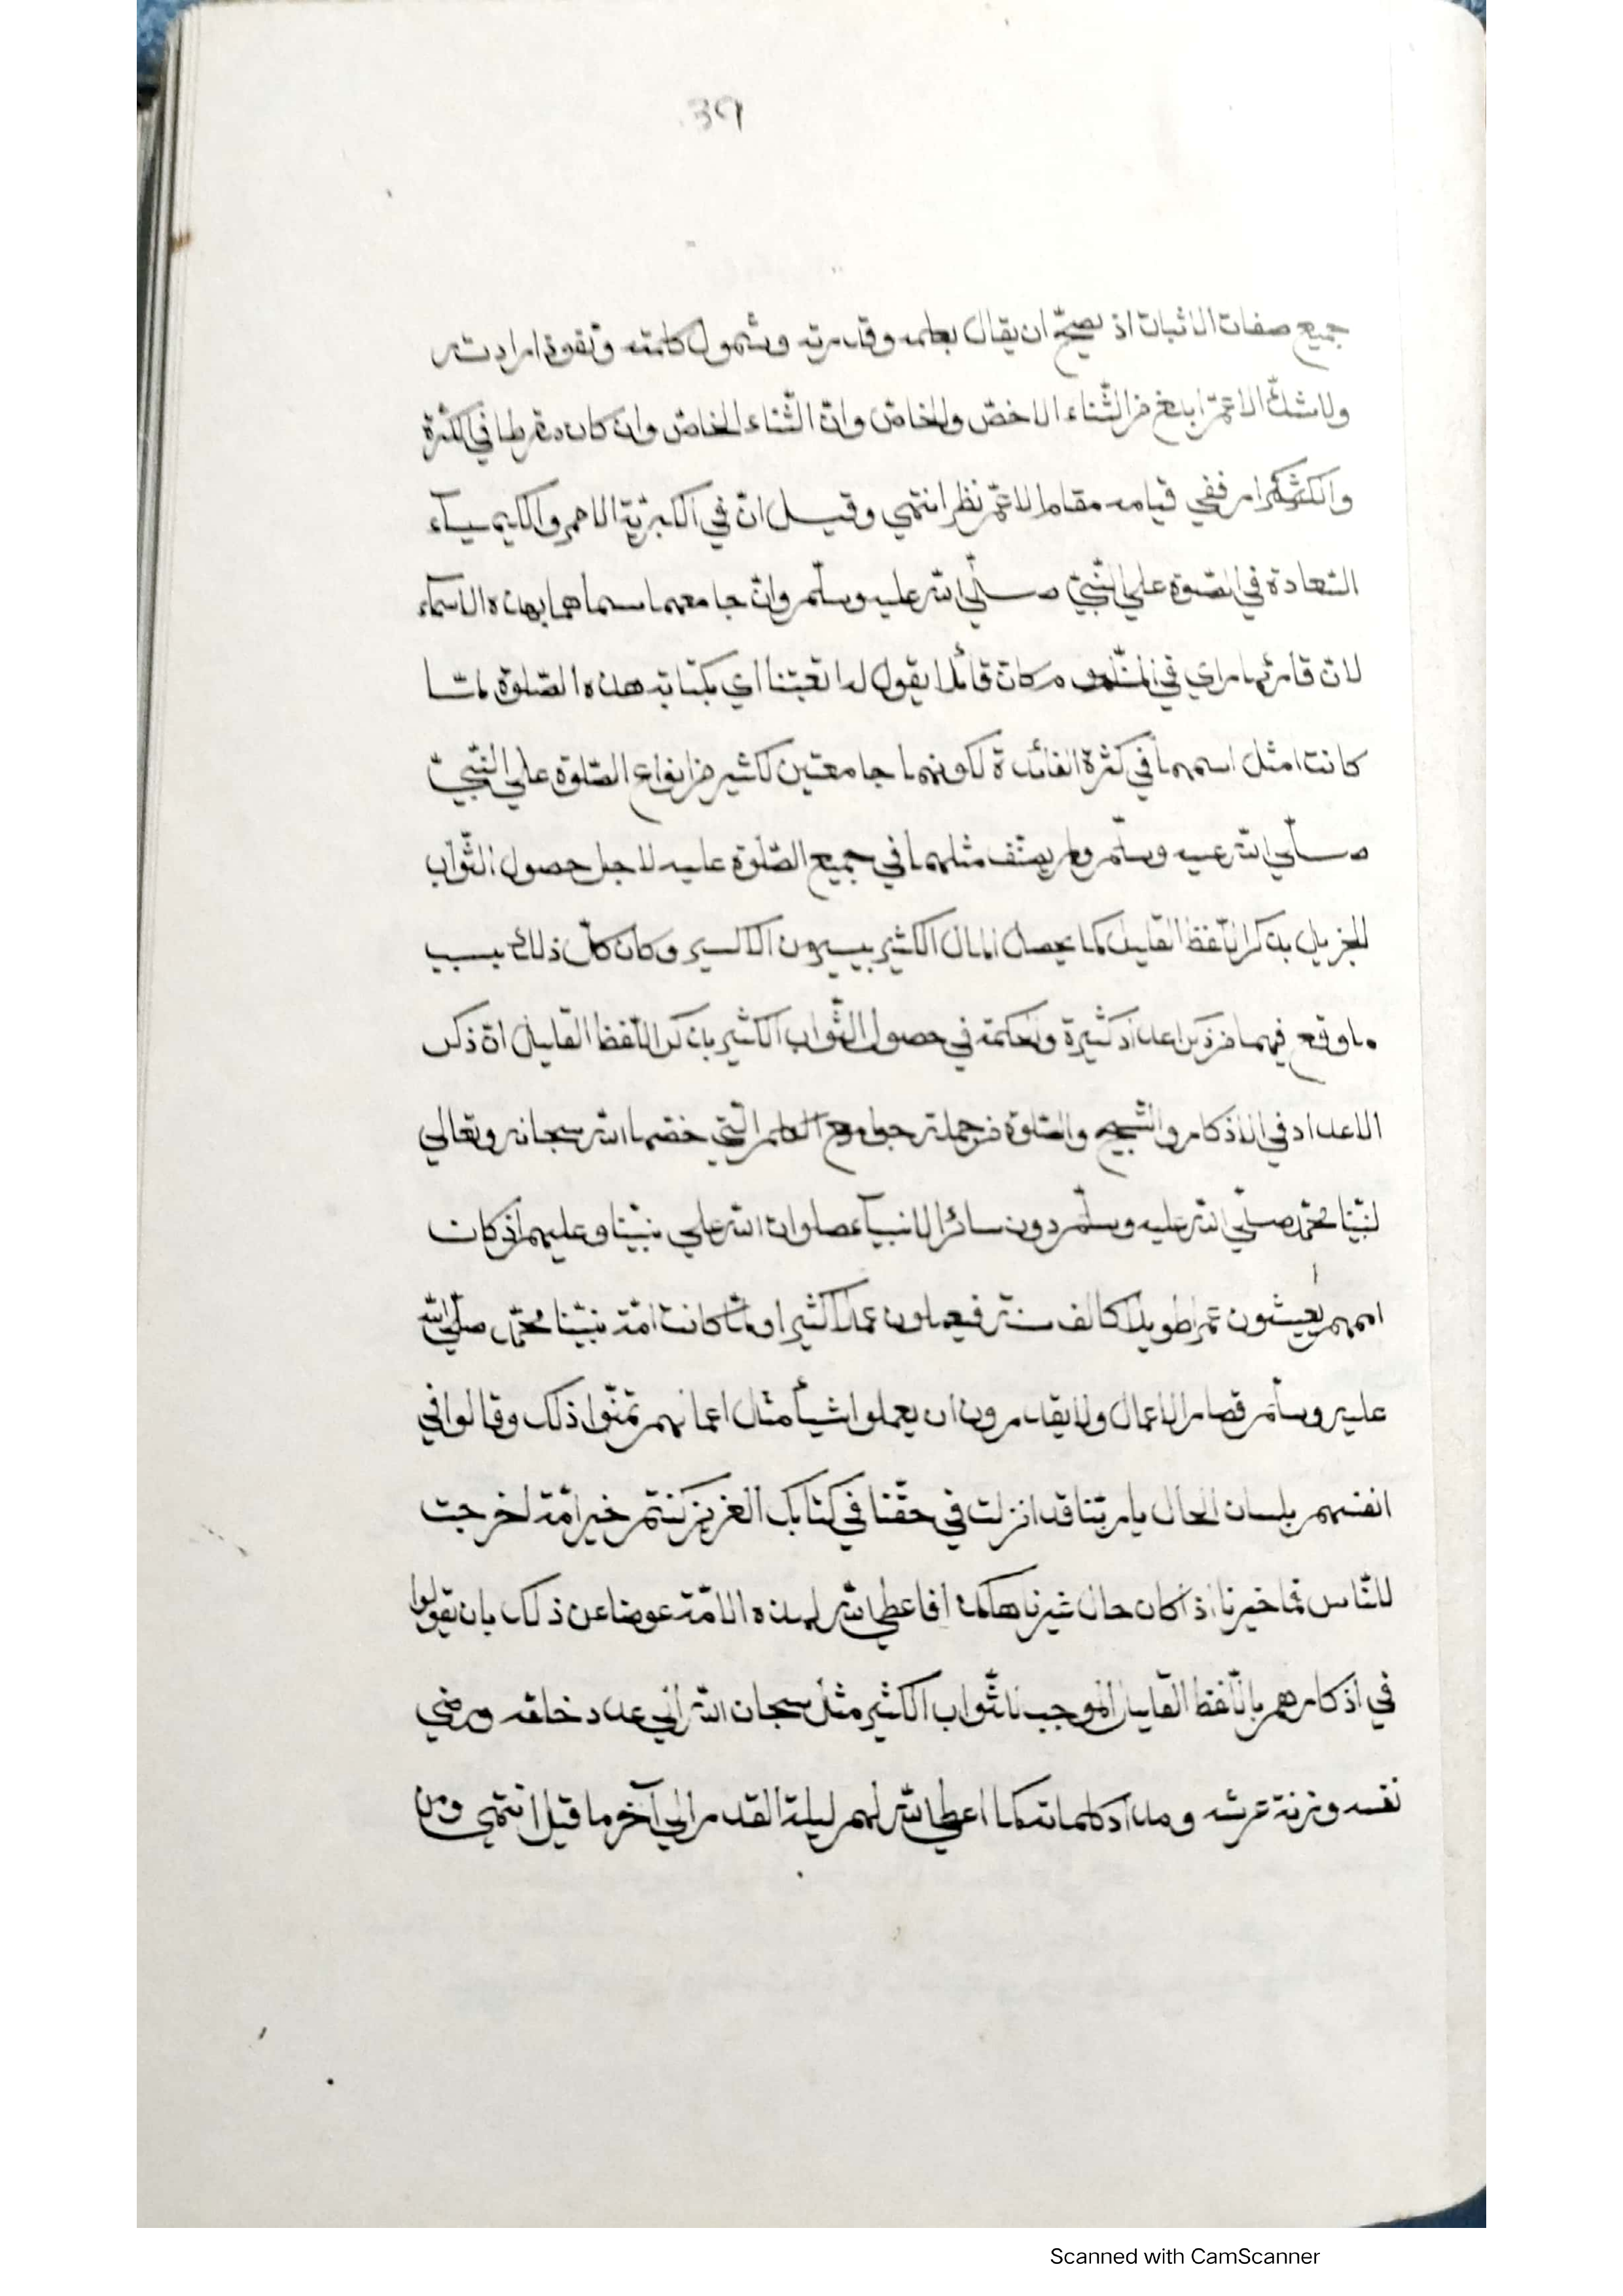 39
جميع صفات الاثبات اذ يصحّ ان يقال بعلمه وقدرته وشمول كلمته وتقوة ارادته
ولاشكّ الاعمّ ابلغ من الثّناء الاخصّ والخاصّ وانّ الثّناء الخاصّ وان كان مفرطا في الكثرة
والكثكرار ففي قيامه مقام الاعمّ نظر انتهي وقيل انّ في الكبريّة الاحمر والكيميآء
السّعادة في الصّلوة علي النّبيّ صلّي اللّه عليه وسلّم وانّ جامعهما سماهما بهذه الاسماء
لانّ قارئها راي في كان قائلا يقول له اتعبتنا اي بكتابة هذه الصّلوة لمّا
كانت امثل اسمهما في كثرة الفائدة لكونهما جامعتين لكثير من انواع الصّلوة علي النّبيّ
صلّي اللّه عليه وسلّم ولم يصنّف مثلهما في جميع الصّلوة عليه لاجل حصول الثّواب
الجزيل بذكر اللّفظ القليل كما يحصل المال الكثير بيسير من الاكسير وكان كلّ ذلك بسبب
ما وقع فيهما من ذكر اعداد كثيرة والحكمة في حصول الثّواب الكثير بذكر اللّفظ القليل انّ ذكر
الاعداد في الاذكار والتّسبيح والصّلوة من جملة جوامع الكلم الّتي خصّها اللّه سبحانه وتعالي
لنبيّنا محمّد صلّي اللّه عليه وسلّم دون سائر الانبيآء صلوات اللّه علي نبيّنا وعليهم اذ كان
اممهم يعيشون عمرا طويلا كالف سنة فيعملون عملا كثيرا ولمّا كانت امّة نبيّنا محمّد صلّي اللّه
عليه وسلّم قصار الاعمال ولا يقدرون ان يعملوا شيأ مثل اعمالهم تمنّوا ذلك وقالوا في
انفسهم بلسان الحال يا ربّنا قد انزلت في حقّنا في كتابك العزيز كنتم خير امّة اخرجت
للنّاس فما خيرنا اذ كان حال غيرنا هكذا فاعطي اللّه لهذه الامّة عوضا عن ذلك بان يقولوا
في اذكارهم باللّفظ القليل الموجب للثّواب الكثير مثل سبحان اللّه الي عدد خلقه ورضي
نفسه وزنة عرشه ومداد كلماته كما اعطي اللّه لهم ليلة القدر الي آخر ما قيل انتهي ومن
Scanned with CamScanner